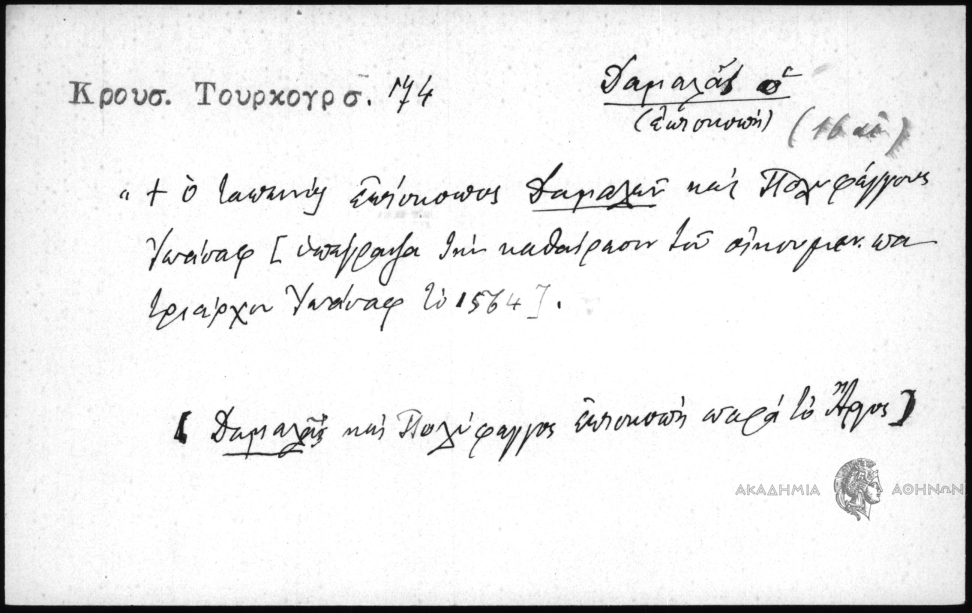 Κρουσ. Τουρκογρ σ. 174
Δαμαλᾶς ὁ
(ἐπισκοπή) (16 αἰ)
"+ ὁ ταπεινὸς ἐπίσκοπος Δαμαλῶν καὶ Πολυφάγγους
Ἰωάσαφ [ὑπέγραψα τὴν καθαίρεσιν τοῦ οἰκουμεν. πα
τριάρχου Ἰωάσαφ τὸ 1564].
[Δαμαλᾶς καὶ Πολύφαγγος ἐπισκοπὴ παρὰ τὸ Ἄργος]
ΑΚΑΔΗΜΙΑ ΑΘΗΝΩΝ